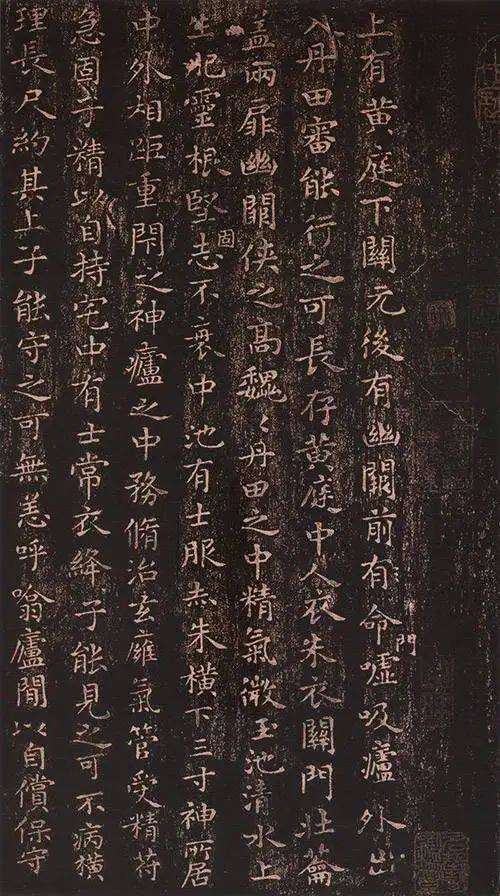 上有黄庭下關元後有幽闕前有命門嘘吸廬外出
入丹田審能行之可長存黄庭中人衣朱衣關門壯籥
蓋兩扉幽闕俠之高巍〻丹田之中精氣微玉池清水上
生肥靈根堅固志不衰中池有士服赤朱横下三寸神所居
中外相距重閇之神廬之中務脩治玄廱氣管受精苻
急固子精以自持宅中有士常衣絳子能見之可不病横
理長尺約其上子能守之可無恙呼噏廬間以自償保守